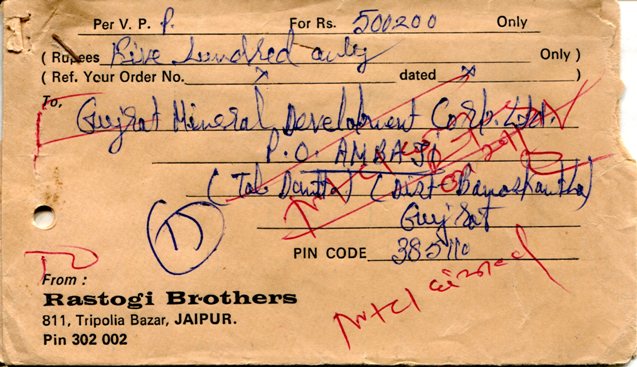 Per V. P. P. For Rs. 500200 Only
( Rupees Five Hundred only Only )
( Ref. Your Order No. x dated x )
To,
Gujrat Mineral Development Corp. Ltd.
P.O. AMBAJI
( Tal Danta ) ( Dist. Banaskantha )
Gujrat
PIN CODE 385110
From :
Rastogi Brothers
811, Tripolia Bazar, JAIPUR.
Pin 302 002